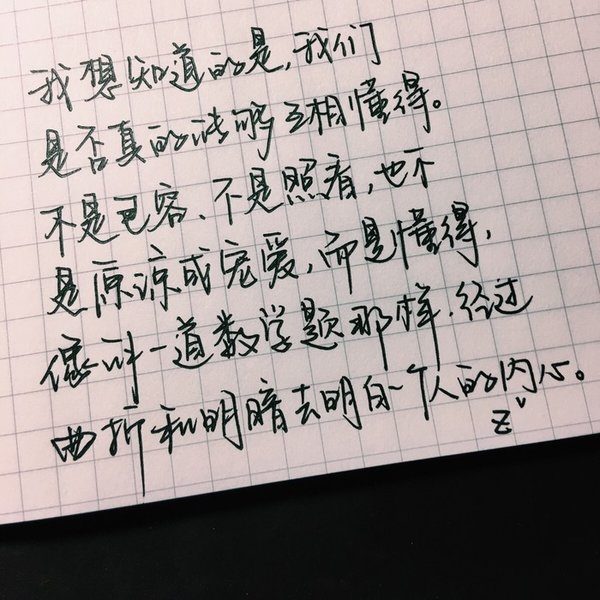 我想知道的是，我们
是否真的能够互相懂得。
不是包容、不是照看，也不
是原谅或宠爱，而是懂得，
像对一道数学题那样，经过
曲折和明暗去明白一个人的内心。
Z